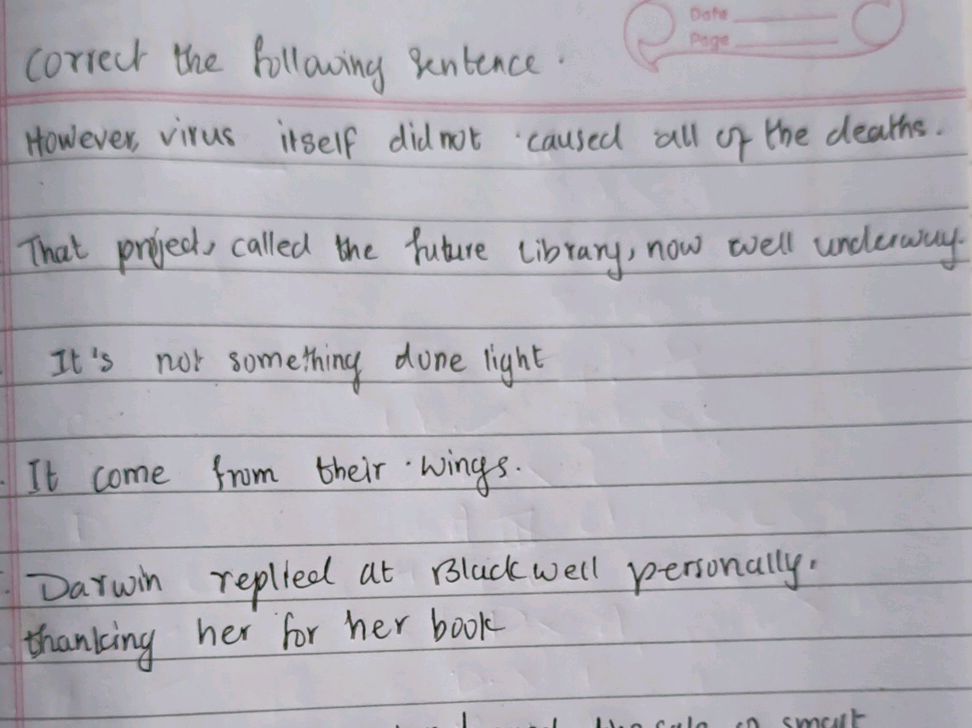 Date
Page
Correct the following sentence.
However, virus itself did not caused all of the deaths.
That project, called the future library, now well underway.
It's not something done light
It come from their wings.
Darwin replied at Blackwell personally,
thanking her for her book
smart